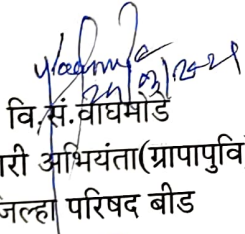 वि.सं.वाघमोडे
री अभियंता(ग्रापापुवि
जल्हा परिषद बीड